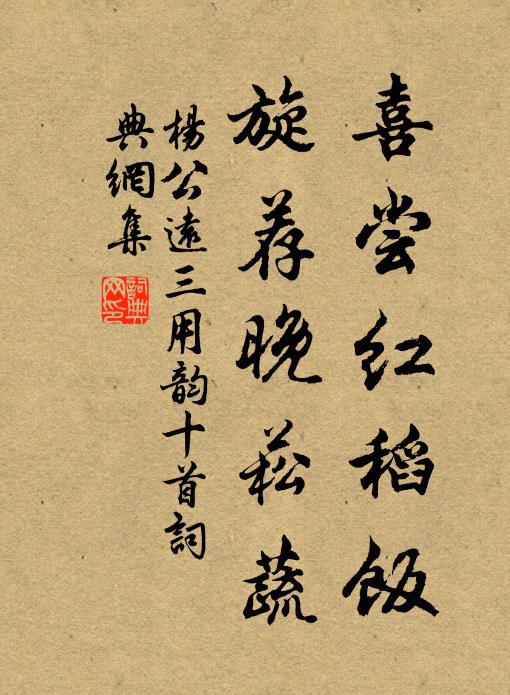 喜尝红稻饭
旋荐晚菘蔬
杨公远三用韵十首词
典网集
词典网印